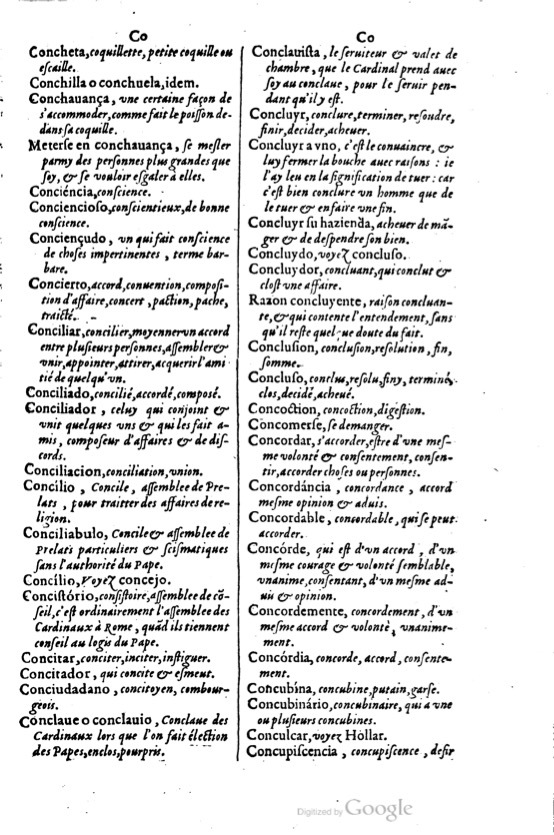 Co
Concheta, coquillette, petite coquille ou
escaille.
Conchilla o conchuela, idem.
Conchauança, vne certaine façon de
s'accommoder, comme fait le poisson de-
dans sa coquille.
Meterse en conchauança, se mesler
parmy des personnes plus grandes que
soy, & se vouloir esgaler à elles.
Conciéncia, conscience.
Conciencioso, conscientieux, de bonne
conscience.
Conciençudo, vn qui fait conscience
de choses impertinentes, terme bar-
bare.
Concierto, accord, conuention, composi-
tion d'affaire, concert, paction, pache,
traicté.
Conciliar, concilier, moyenner vn accord
entre plusieurs personnes, assembler &
vnir, appointer, attirer, acquerir l'ami
tié de quelqu'vn.
Conciliado, concilié, accordé, composé.
Conciliador, celuy qui conjoint &
vnit quelques vns & qui les fait a-
mis, composeur d'affaires & de dis-
cords.
Conciliacion, conciliation, vnion.
Concilio, Concile, assemblee de Pre-
lats, pour traitter des affaires de re-
ligion.
Conciliabulo, Concile & assemblee de
Prelats particuliers & scismatiques
sans l'authorité du Pape.
Concílio, Voyez concejo.
Concistório, consistoire, assemblee de cõ-
seil, c'est ordinairement l'assemblee des
Cardinaux à Rome, quãd ils tiennent
conseil au logis du Pape.
Concitar, conciter, inciter, instiguer.
Concitador, qui concite & esmeut.
Conciudadano, concitoyen, combour-
geois.
Conclaue o conclauio, Conclaue des
Cardinaux lors que l'on fait élection
des Papes, enclos, pourpris.
Co
Conclauista, le seruiteur & valet de
chambre, que le Cardinal prend auec
soy au conclaue, pour le seruir pen-
dant qu'il y est.
Concluyr, conclure, terminer, resoudre,
finir, decider, acheuer.
Concluyr a vno, c'est le conuaincre, &
luy fermer la bouche auec raisons : ie
l'ay leu en la signification de tuer : car
c'est bien conclure vn homme que de
le tuer & en faire vne fin.
Concluyr su hazienda, acheuer de mã-
ger & de despendre son bien.
Concluydo, voyez concluso.
Concluydor, concluant, qui conclut &
clost vne affaire.
Razon concluyente, raison concluan-
te, & qui contente l'entendement, sans
qu'il reste quelque doute du fait.
Conclusion, conclusion, resolution, fin,
somme.
Concluso, conclus, resolu, finy, terminé,
clos, decidé, acheué.
Concoction, concoction, digestion.
Concomerse, se demanger.
Concordar, s'accorder, estre d'vne mes-
me volonté & consentement, consen-
tir, accorder choses ou personnes.
Concordáncia, concordance, accord
mesme opinion & aduis.
Concordable, concordable, qui se peut
accorder.
Concórde, qui est d'vn accord, d'vn
mesme courage & volonté semblable,
vnanime, consentant, d'vn mesme ad-
uis & opinion.
Concordemente, concordement, d'vn
mesme accord & volonté, vnanime-
ment.
Concórdia, concorde, accord, consente-
ment.
Concubína, concubine, putain, garse.
Concubinário, concubinaire, qui a vne
ou plusieurs concubines.
Conculcar, voyez Hollar.
Concupiscencia, concupiscence, desir
Digitized by Google